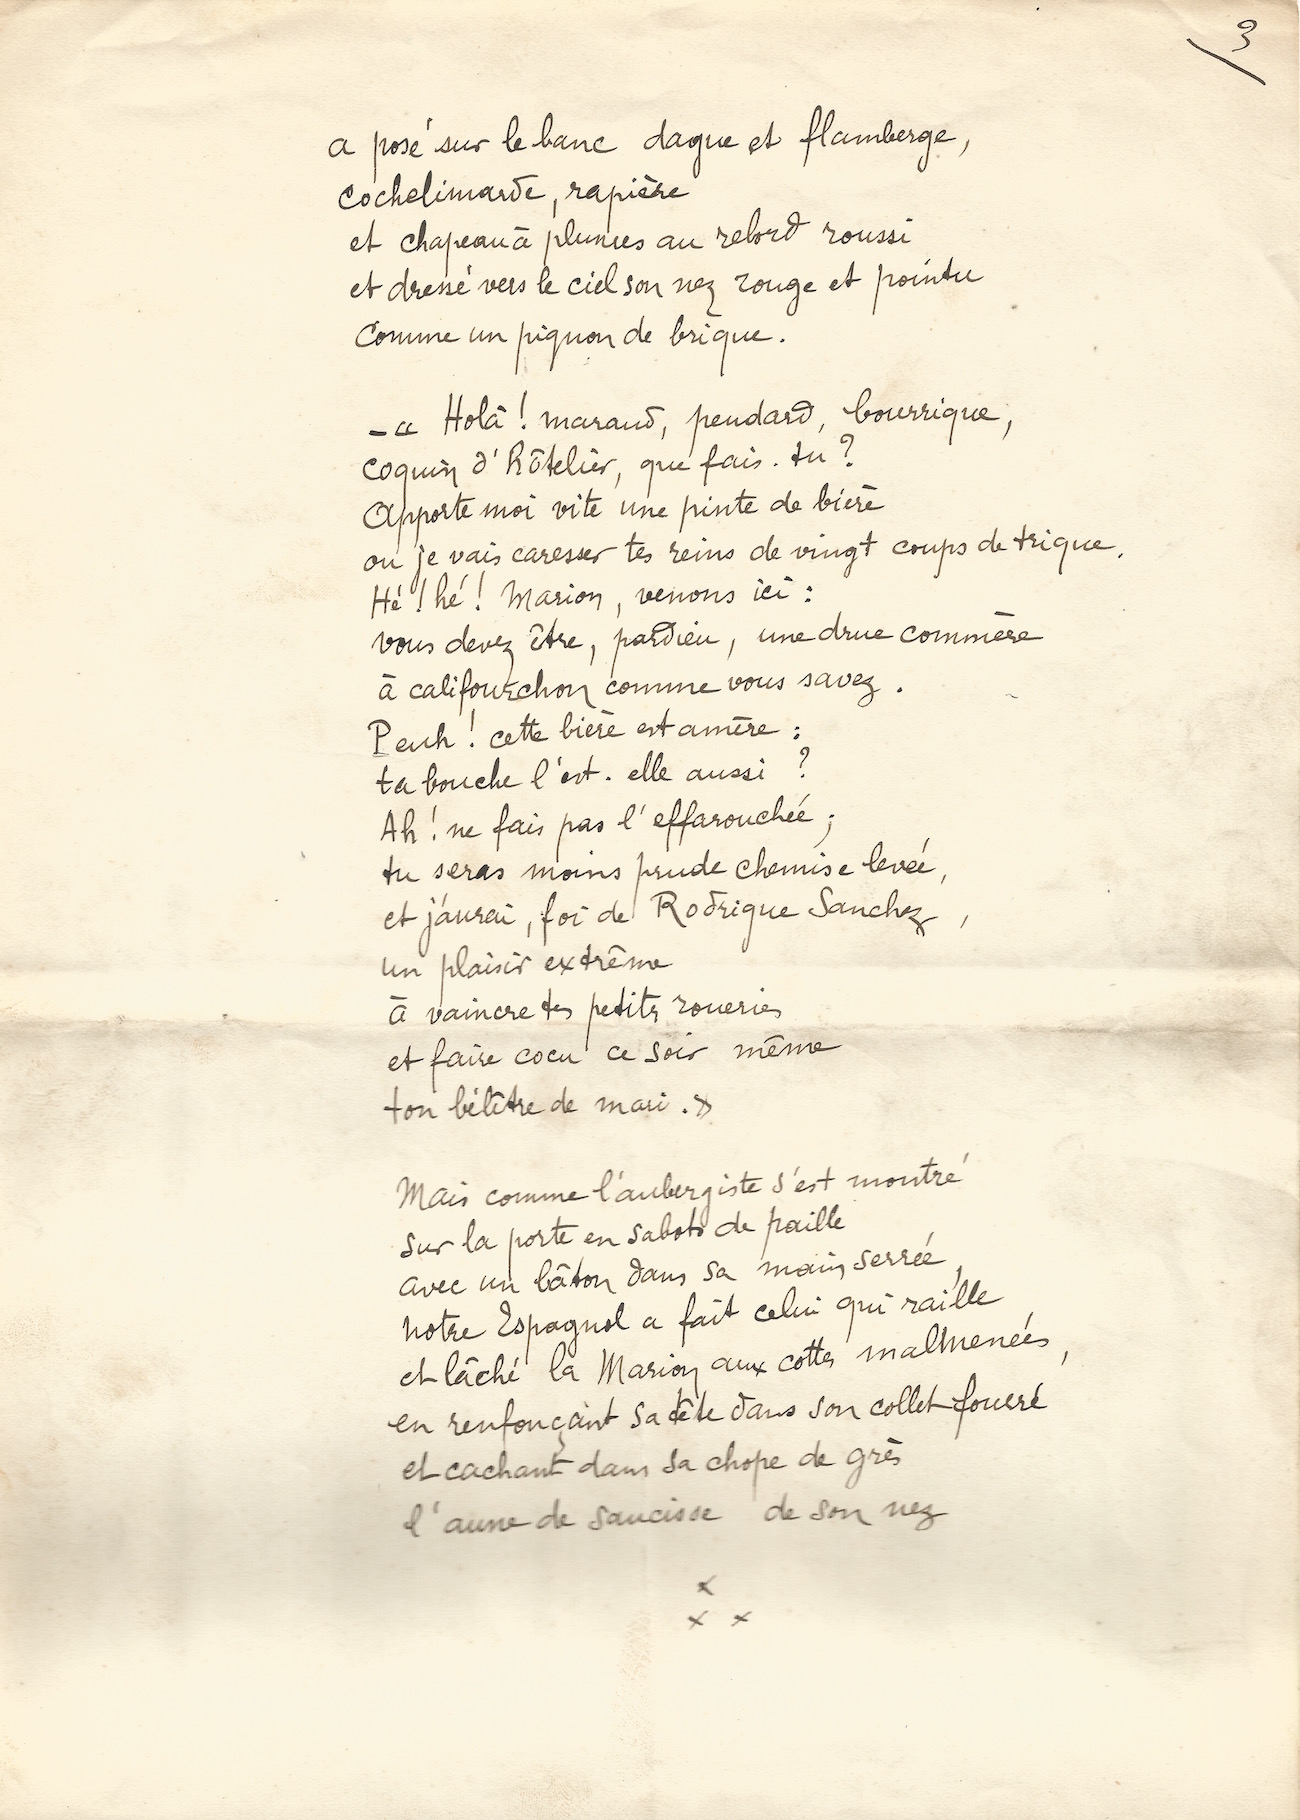 3
a posé sur le banc dague et flamberge,
cochelimarde, rapière
et chapeau à plumes au rebord roussi
et dressé vers le ciel son nez rouge et pointu
comme un pignon de brique.
– « Holà ! maraud, pendard, bourrique,
coquin d'hôtelier, que fais-tu ?
Apporte moi vite une pinte de bière
ou je vais caresser tes reins de vingt coups de trique.
Hé ! hé ! Marion, venons ici :
vous devez être, pardieu, une drue commère
à califourchon comme vous savez.
Peuh ! cette bière est amère :
ta bouche l'est-elle aussi ?
Ah ! ne fais pas l'effarouchée ;
tu seras moins prude chemise levée,
et j'aurai, foi de Rodrigue Sanchez,
un plaisir extrême
à vaincre tes petites roueries
et faire cocu ce soir même
ton bélître de mari. »
Mais comme l'aubergiste s'est montré
sur la porte en sabots de paille
avec un bâton dans sa main serrée,
notre Espagnol a fait celui qui raille
et lâché la Marion aux cottes malmenées,
en renfonçant sa tête dans son collet fourré
et cachant dans sa chope de grès
l'aune de saucisse de son nez
x
x x